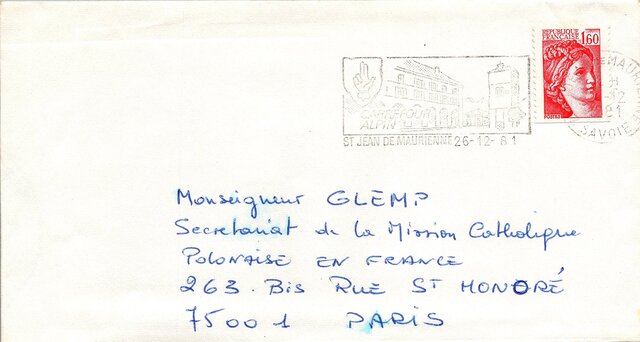 REPUBLIQUE
FRANÇAISE 1,60
POSTES
CARREFOUR
ALPIN
ST JEAN DE MAURIENNE 26-12-81
SAVOIE
Monseigneur GLEMP
Secretariat de la Mission Catholique
POLONAISE EN FRANCE
263 . Bis RUE ST HONORÉ
75001 PARIS